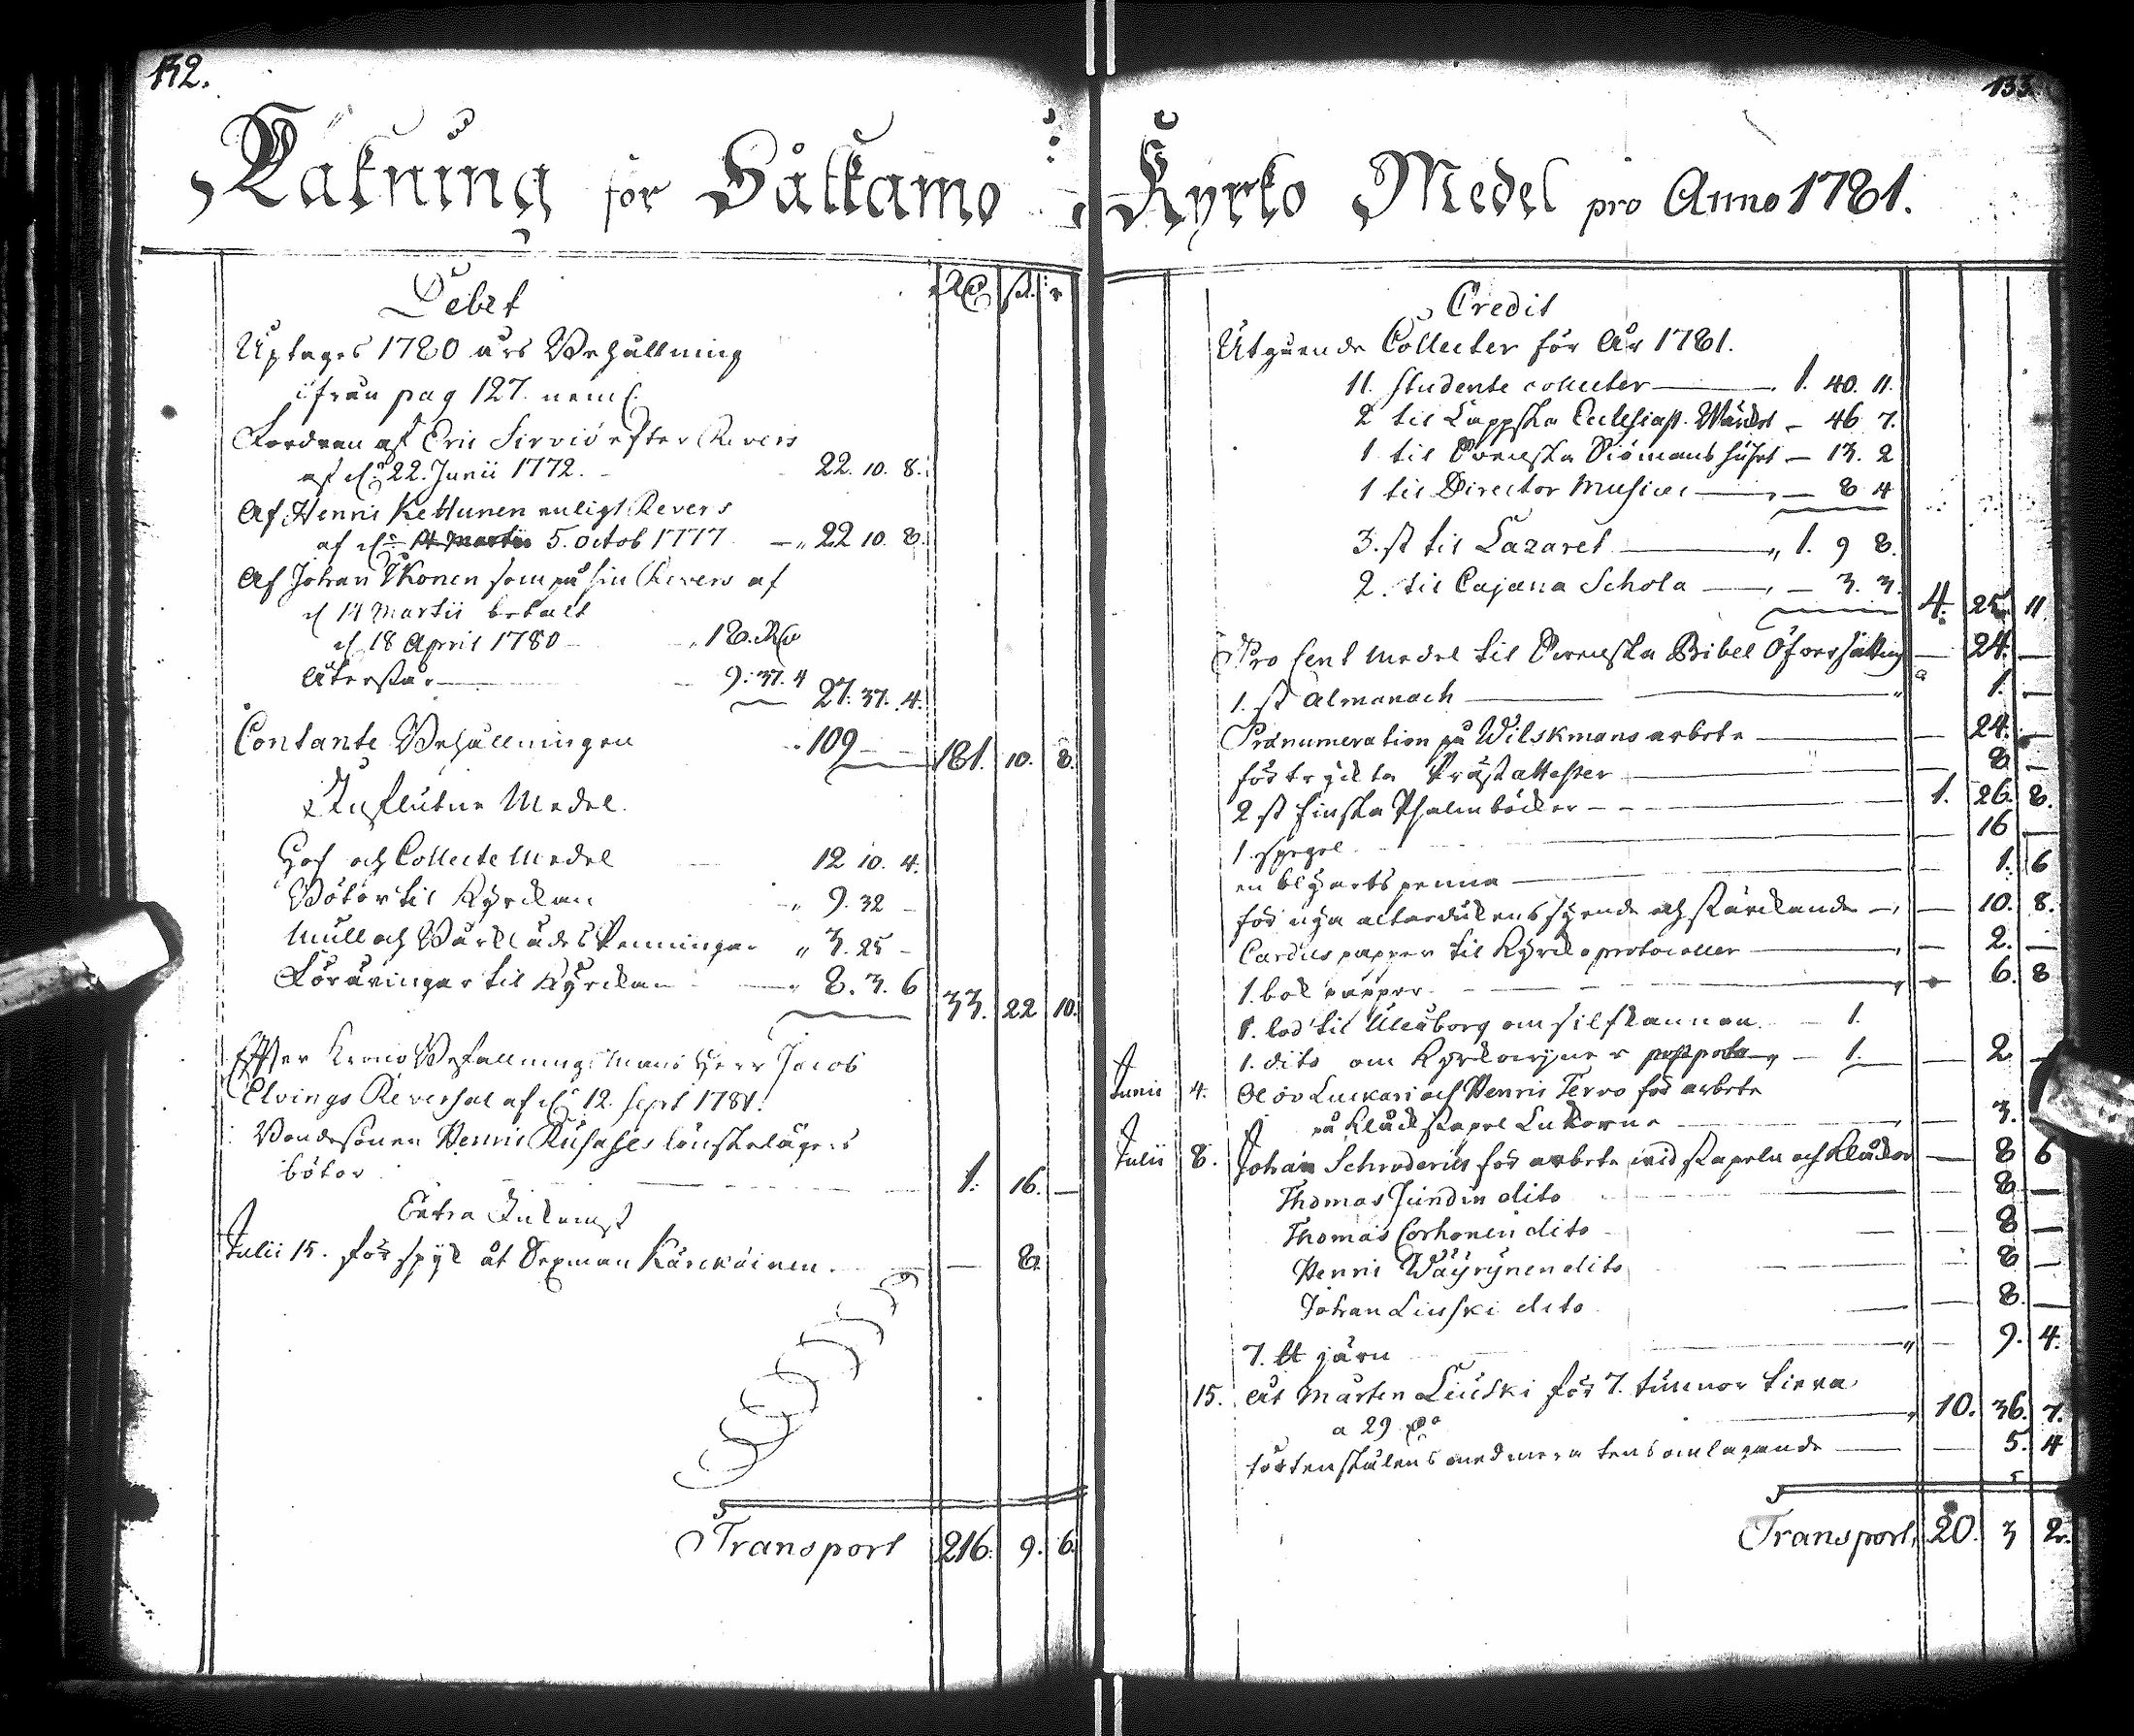 132.
Räkning för Såtkamo
Debet
Rd sk. r
Uptages 1780 års Behållning
ifrån pag 127. neml.
Fordran af Eric Sirviö efter Revers
af d. 22. Junii 1772. 22. 10. 8.
Af Henric Kettunen enligt Revers
af d. 14 Martii 5. octob 1777 22 10. 8.
Af Johan Ikonen som på sin Revers af
d 14 Martii betalt
d. 18 April 1780 18. Rd
Återstår 9. 37. 4 27. 37. 4.
Contante Behållningen 109 181. 10. 8.
Influtne Medel.
Hof och Collecte Medel 12 10. 4.
Böter til Kyrckan 9. 32
Mull och Bårklädes Penningar 3. 25
Föräringar til Kyrckan 8. 3. 6 33. 22 10.
Efter Krono Befallningsmans Herr Jacob
Elvings Reversal af d. 12. Sept 1781.
Bondesonen Henric lönskelägers
böter 1. 16.
Extra Inkomst
Julii 15. för spik åt Sexman Kärckäinen. 8.
Transport 216. 9. 6.
133.
Kyrko Medel pro Anno 1781.
Credit
Utgående Collecter för År 1781.
11. studente collecter 1. 40. 11.
2 til Lappska Ecclesiast. Wärket 46 7.
1 til Svenska Siömans huset 13. 2
1 til Director Musices 8 4
3. st til Lazaret 1. 9 8.
2. til Cajana Schola 3. 3. 4. 25. 11.
Pro Cent Medel til Svenska Bibel Öfversättning 24.
1. st Almanach 1.
Pränumeration på Wilskmans arbete 24.
för tryckta Prästattester 8
2 st finska Psalmböcker 1. 26. 8.
1. spegel 16
en blyartspenna 1. 6
för nya altardukens syende och stärckande 10. 8.
Cardus papper til Kyrckoprotocoller 2.
1. bok papper 6. 8
1. lod til Uleåborg om silfkannan. 1.
1. dito om Kyrckowiner postporto 1. 2
Junii 4. Olov Luckari och Henric Tervo för arbete
på Klåckstapel Luckorne 3.
Julii 8. Johan Schroderus för arbete vid stapeln och Klåckor 8 6
Thomas Jundin dito 8
Thomas Corhonen dito 8
Henric Wäyrynen dito 8
Johan Liuski dito 8.
7. lb järn 9. 4.
15. åt Mårten Liuski för 7. tunnor tiera
a 29 10. 36. 7.
5. 4
Transport 20. 3 2.